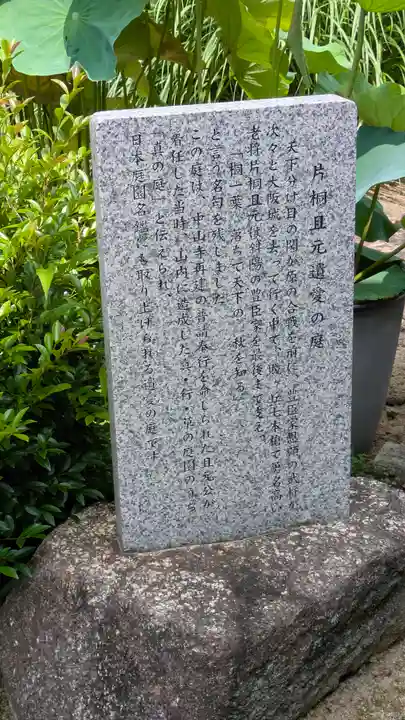 片桐且元遺愛の庭
天下分け目の関ヶ原の合戦を前に、豊臣家恩顧の武将が
次々と大阪城を去って行く中で、賤ヶ岳七本槍で勇名高い
老将片桐且元は斜陽の豊臣家を最後まで支え、
「桐一葉 落ちて天下の 秋を知る」
と言う名句を残しました。
この庭は、中山寺再建の普請奉行を命じられた且元公が
着任した当時、山内に造成した真・行・草の庭園のうち
「真の庭」と伝えられ、
日本庭園名鑑にも取り上げられる遺愛の庭です。